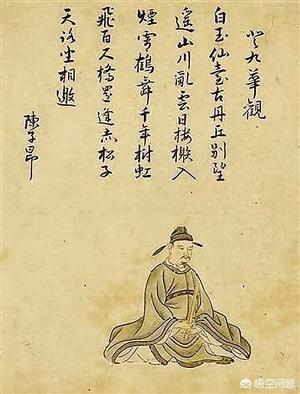 登九華觀
白玉仙臺古丹丘別望
遙山川亂雲日樓榭入
煙霄鶴舞千年樹虹
飛百尺橋還逢赤松子
天路坐相邀
陳子昂
悟空问答